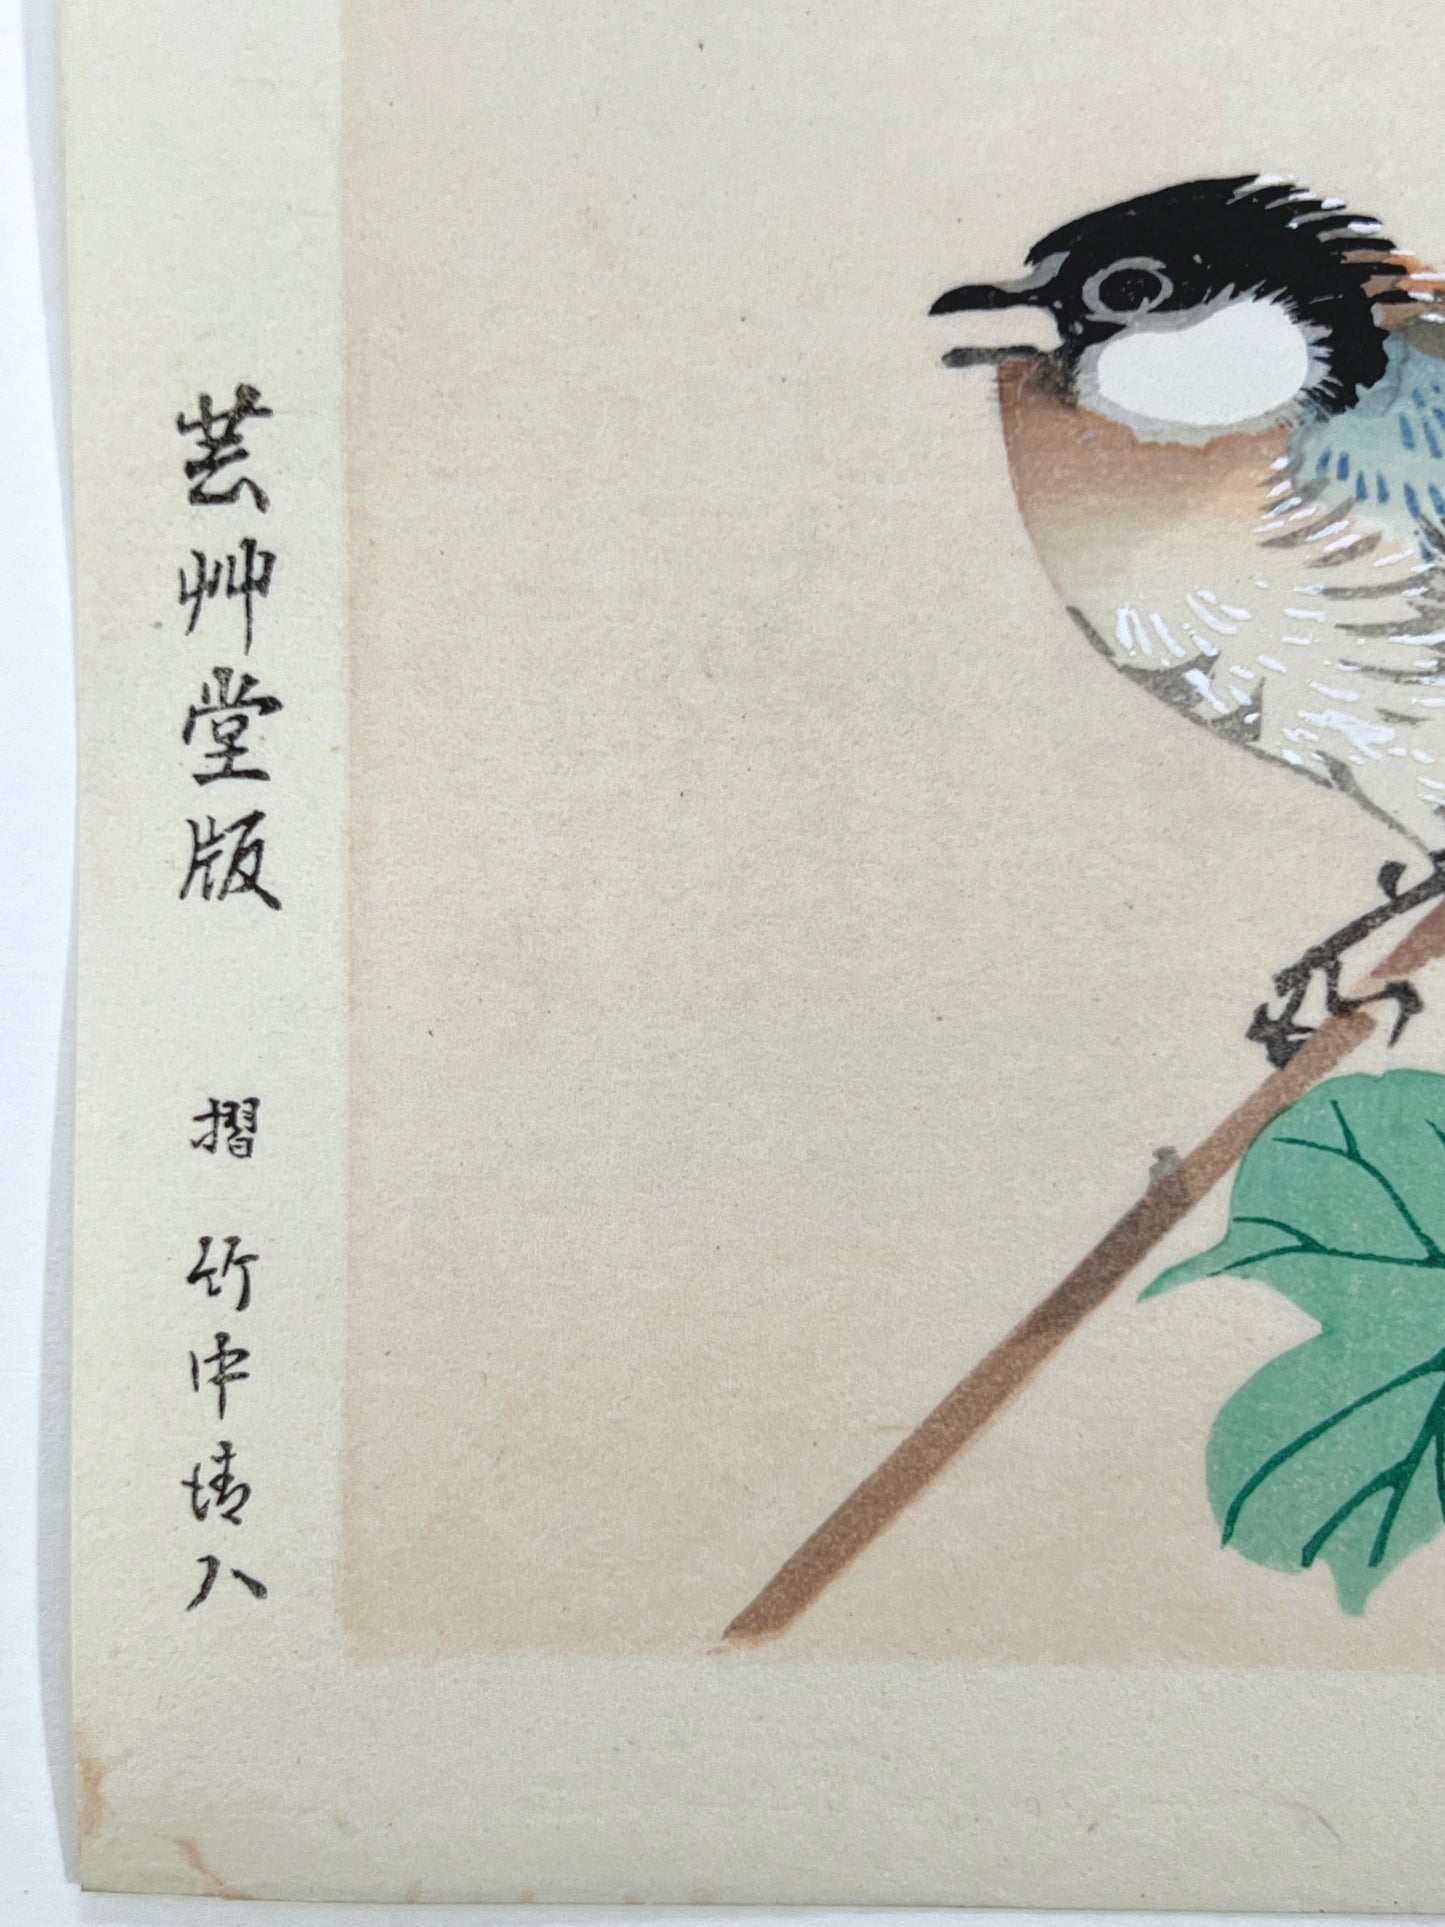 芸艸堂版
摺 竹中清八